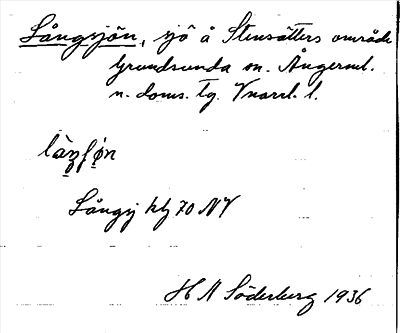 Långsjön, sjö å Stensätters område
Grundsunda sn. Ångerml.
n. doms. tg. Vnorrl. l.
làŋʃøn
Långsj kbl 70 NV
H N Söderberg 1936